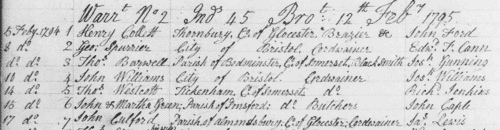 Warrt. No 2 Ind 45 Brot. 12th Feby 1795
5 Feby. 1794 1 Henry Collett Thornbury, C. of Glocester Brazier &c John Ford
8 do. 2 Geo: Spurrier City of Bristol Cordwainer Edwd. T. Cann
do do. 3 Thos. Barwell Parish of Bedminster, C. of Somerset, Black Smith Jos: Gunning
10 do. 4 John Williams City of Bristol Cordwainer Jos: Williams
14 do. 5 Thos. Westcott Tickenham, C. of Somerset do. Richd. Jenkins
16 do. 6 John & Martha Green; Parish of Twyford: do. Butchers John Cable
17 do. 7 John Culford Parish of Almondsbury; C. of Glocester; Cordwainer Jas. Lewis